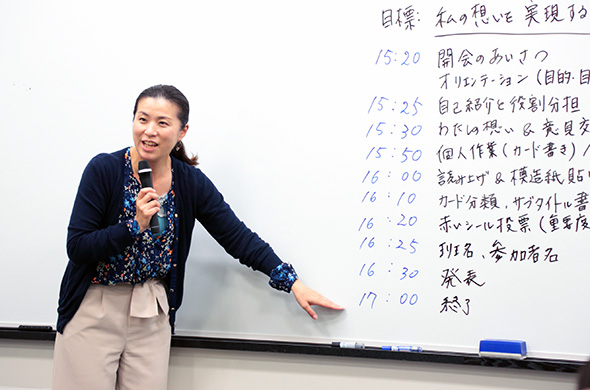 目標: 私の想いを実現する
15:20 開会のあいさつ
オリエンテーション(目的・目
15:25 自己紹介と役割分担
15:30 わたしの想い & 意見交
15:50 個人作業(カード書き)/
16:00 読み上げ & 模造紙貼
16:10 カード分類、サブタイトル書
16:20 赤いシール投票(重要度
16:25 班名、参加者名
16:30 発表
17:00 終了